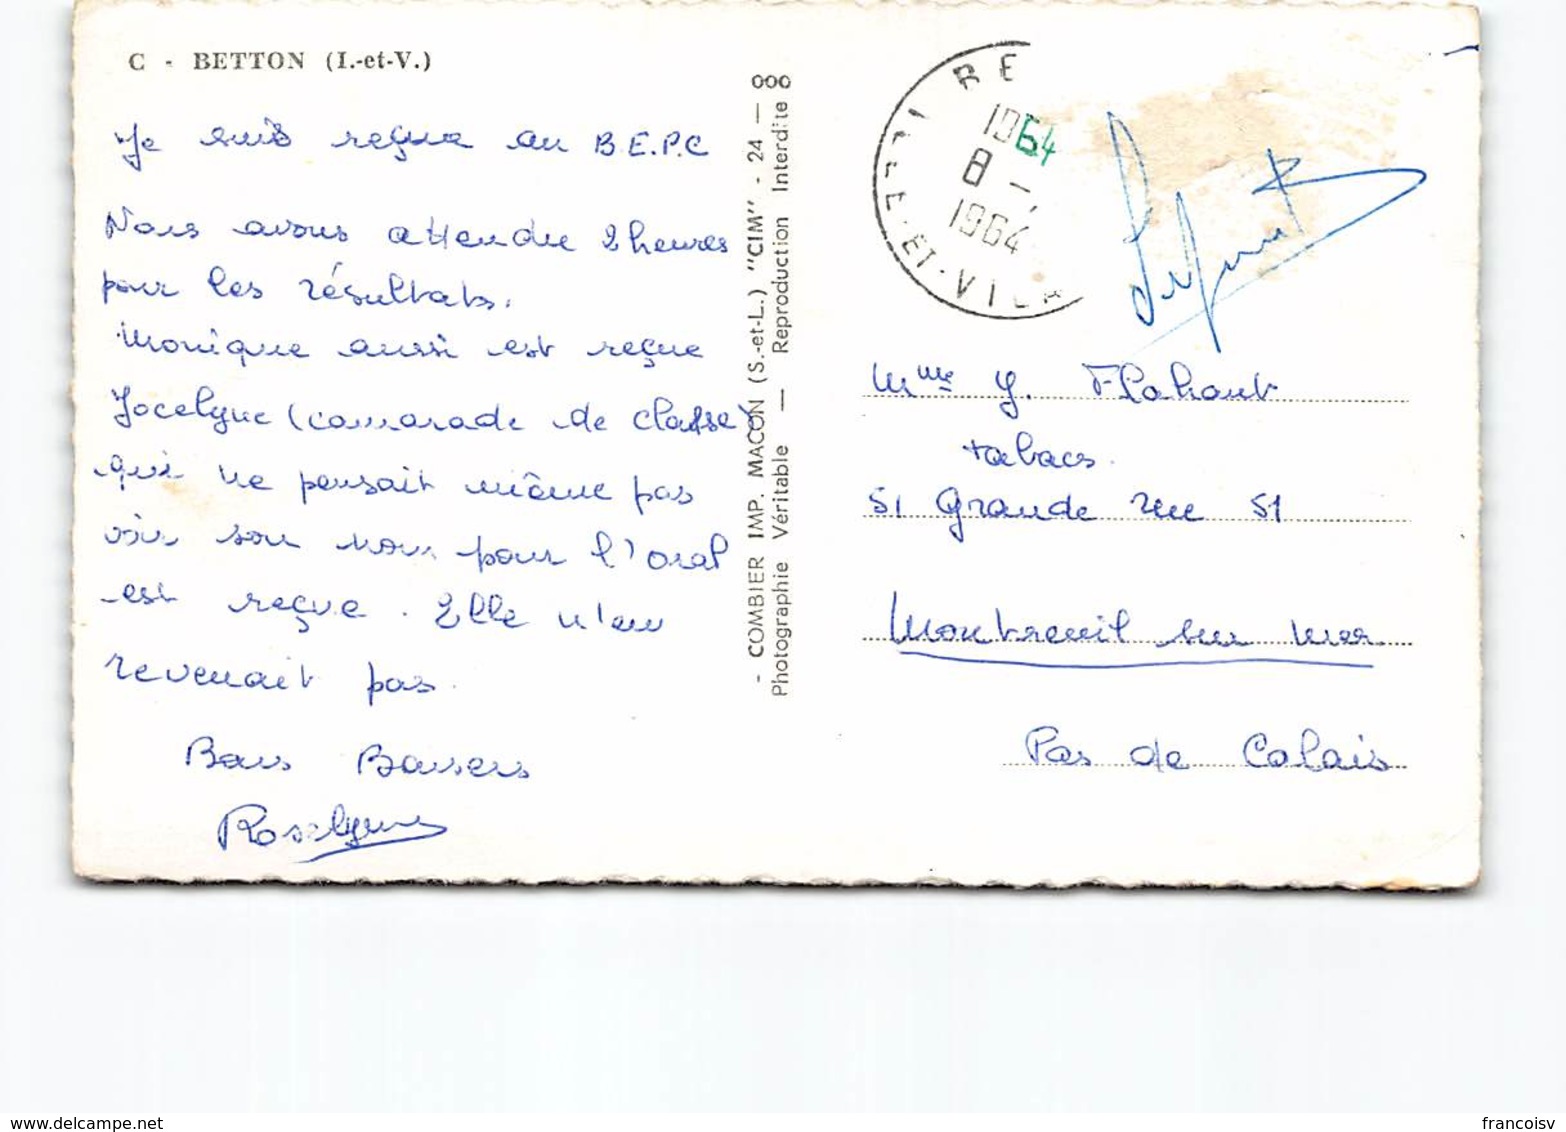 C - BETTON (I.-et-V.)
Je suis reçue au B.E.P.C
Nous avons attendu 2 heures
pour les résultats.
Monique aussi est reçue
Jocelyne (camarade de classe)
qui ne pensait même pas
voir son nom pour l'oral
est reçue. Elle n'en
revenait pas.
Bons Baisers
Roselyne
- COMBIER IMP. MACON (S.-et-L.) "CIM" - 24 — 000
Photographie Véritable — Reproduction Interdite
BE
1964
8 -
1964
ET-VILA
Mme Y. Flahaut
tabacs.
51 Grande rue 51
Montreuil sur mer
Pas de Calais
francoisv